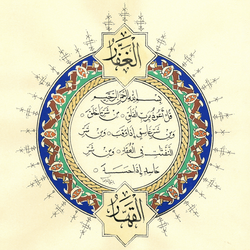 الغفار
بسم الله الرحمن الرحيم
قل أعوذ برب الفلق من شر ما خلق
ومن شر غاسق إذا وقب ومن شر
النفثت في العقد ومن شر
حاسد إذا حسد
القهار